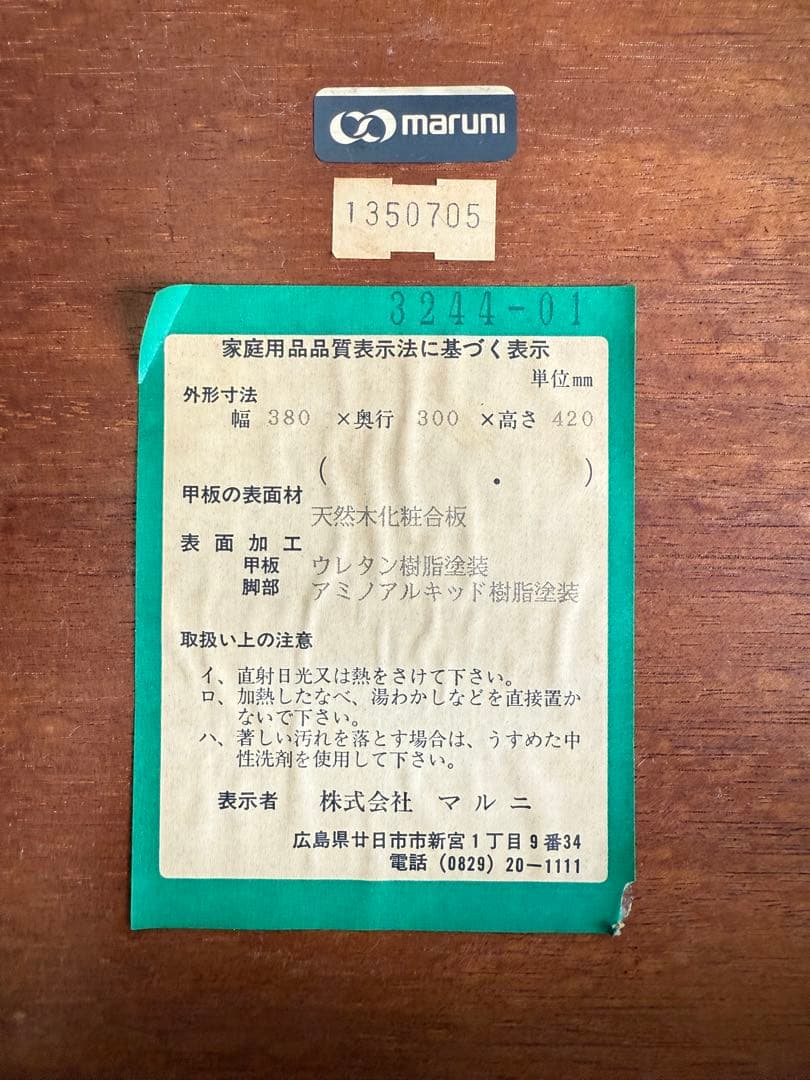 maruni
1350705
3244-01
家庭用品品質表示法に基づく表示
単位mm
外形寸法
幅 380 ×奥行 300 ×高さ 420
( . )
甲板の表面材
天然木化粧合板
表面加工
甲板 ウレタン樹脂塗装
脚部 アミノアルキッド樹脂塗装
取扱い上の注意
イ、直射日光又は熱をさけて下さい。
ロ、加熱したなべ、湯わかしなどを直接置か
ないで下さい。
ハ、著しい汚れを落とす場合は、うすめた中
性洗剤を使用して下さい。
表示者 株式会社 マルニ
広島県廿日市市新宮1丁目9番34
電話 (0829) 20-1111